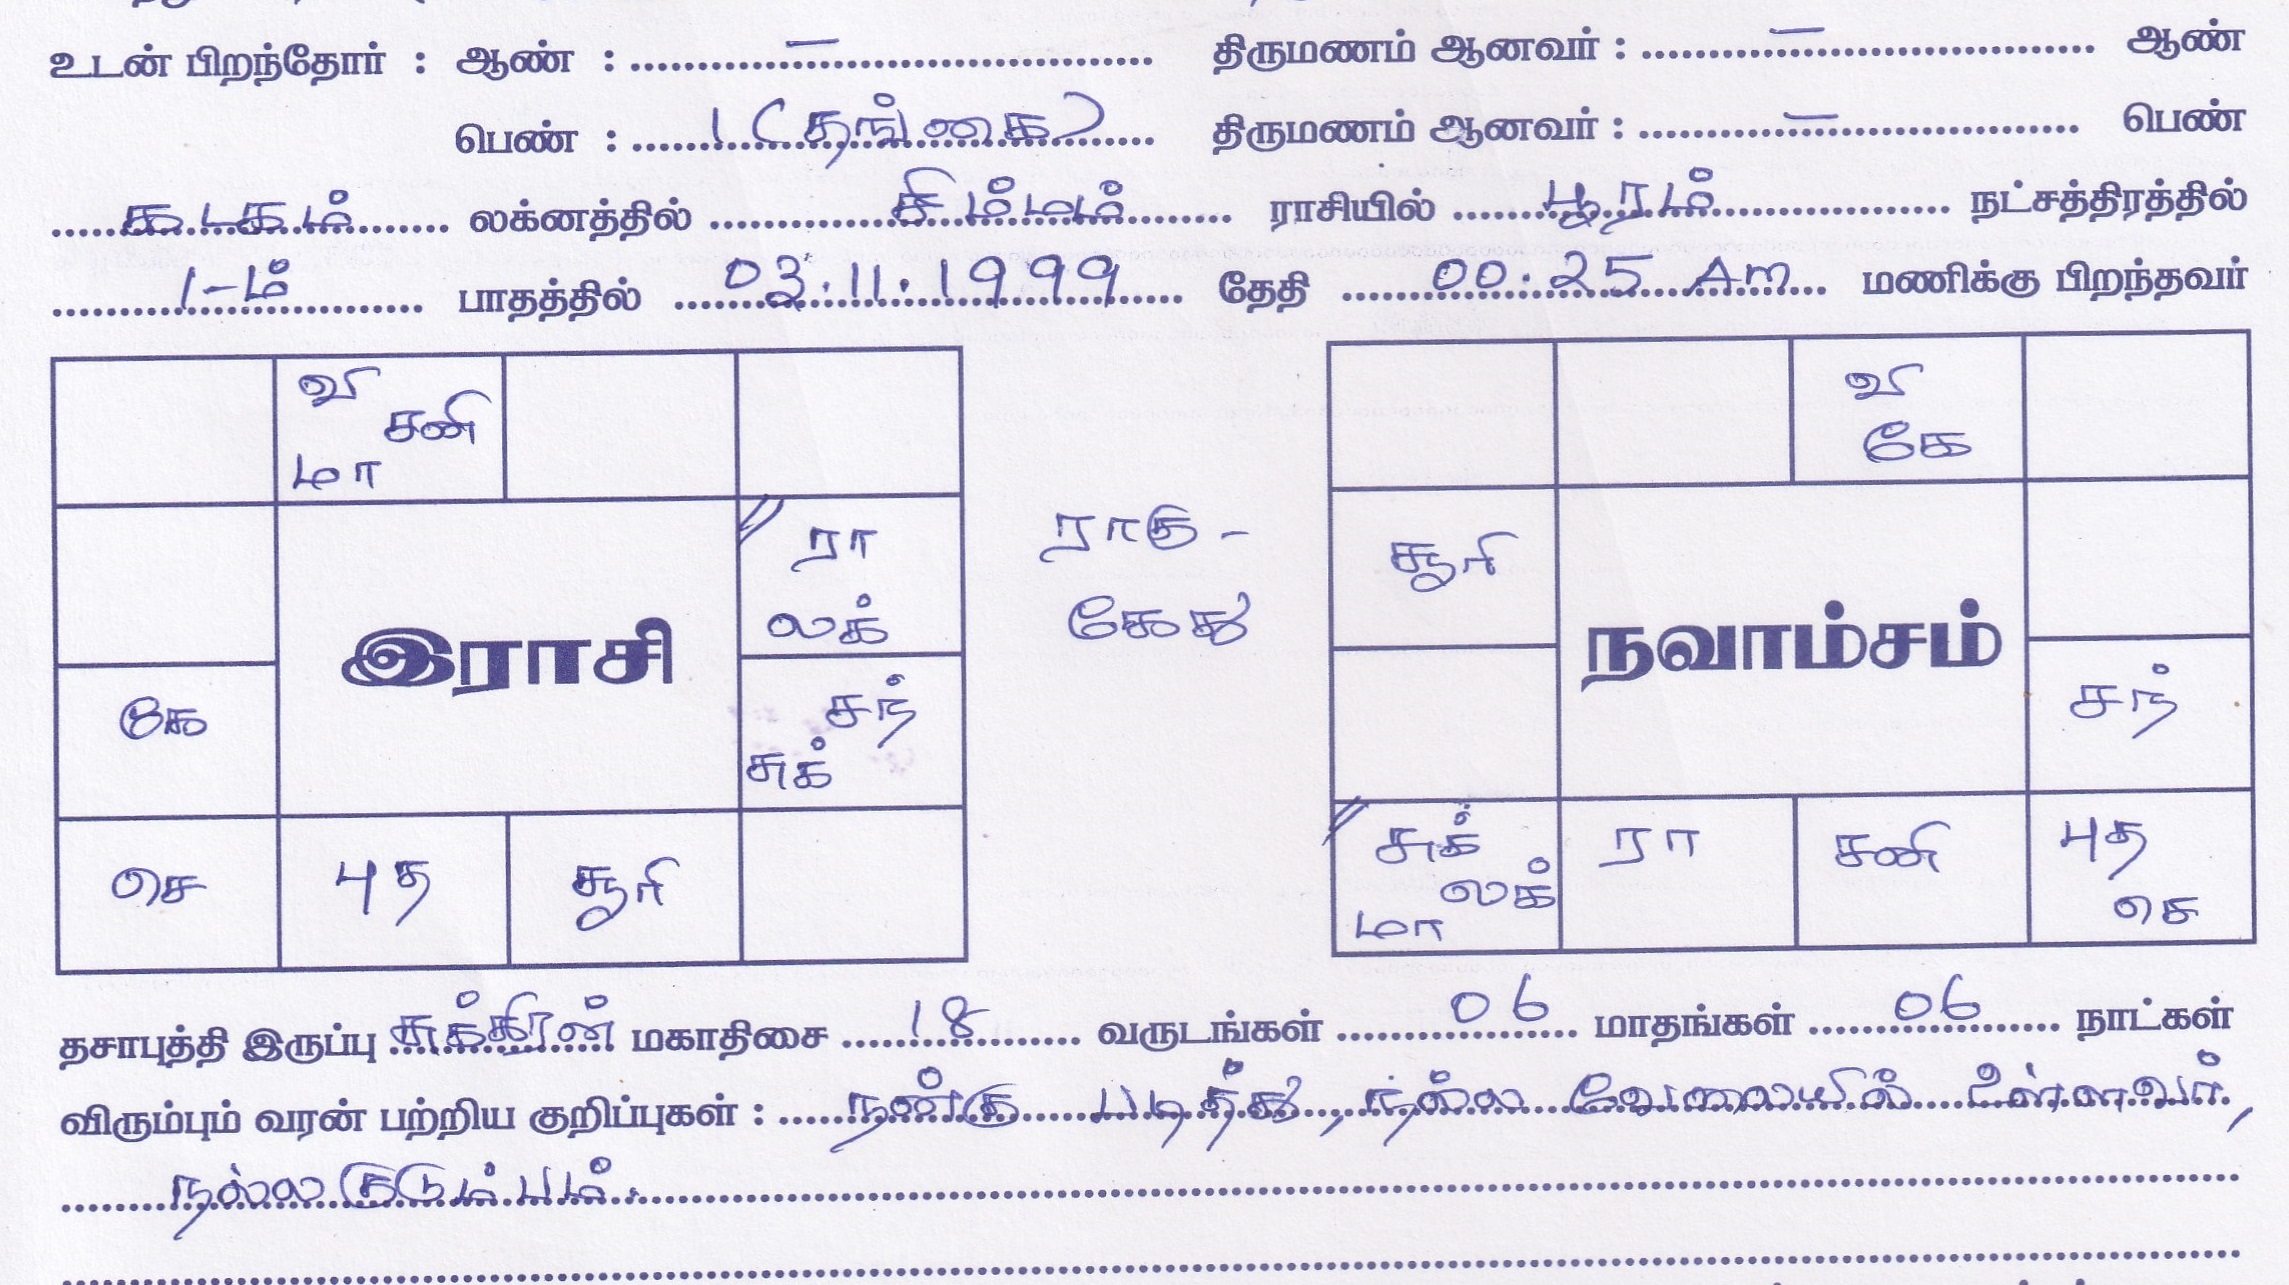 உடன் பிறந்தோர் : ஆண் : .......... – .......... திருமணம் ஆனவர் : .......... – .......... ஆண்
பெண் : .......... 1 (தங்கை) .......... திருமணம் ஆனவர் : .......... – .......... பெண்
.......... கடகம் .......... லக்னத்தில் .......... சிம்மம் .......... ராசியில் .......... பூரம் .......... நட்சத்திரத்தில்
.......... 1-ம் .......... பாதத்தில் .......... 03.11.1999 .......... தேதி .......... 00:25 Am .......... மணிக்கு பிறந்தவர்
வி
சனி
மா
ரா
லக்
இராசி
கே
சந்
சுக்
செ
புத
சூரி
ராகு -
கேது
வி
கே
சூரி
நவாம்சம்
சந்
சுக்
லக்
மா
ரா
சனி
புத
செ
தசாபுத்தி இருப்பு .......... சுக்கிரன் .......... மகாதிசை .......... 18 .......... வருடங்கள் .......... 06 .......... மாதங்கள் .......... 06 .......... நாட்கள்
விரும்பும் வரன் பற்றிய குறிப்புகள் : .......... நன்கு படித்த, நல்ல வேலையில் உள்ளவர்,
நல்ல குடும்பம்.